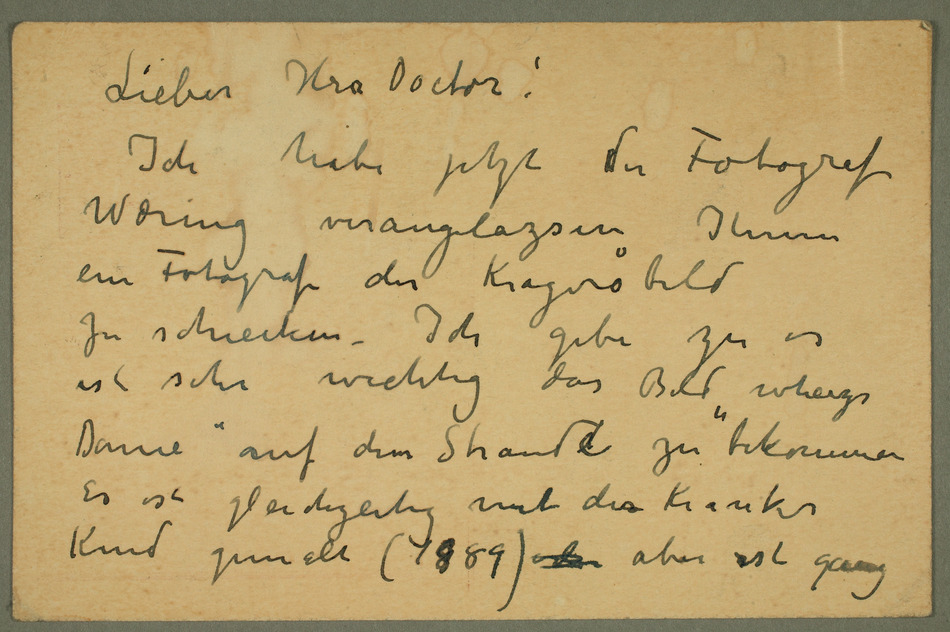 Lieber Hra Doctor!
Ich habe jetzt der Fotograf
Wæring verangelazsen Ihnen
ein Fotografi der Kragerø bild
zu schicken – Ich gebe zu es
ist sehr wichtig das Bild
Dame" auf dem Strande zu "bekommen
Es ist gleichzeitig mit der Kranker
Kind gemalt (1889) aber ist ganz